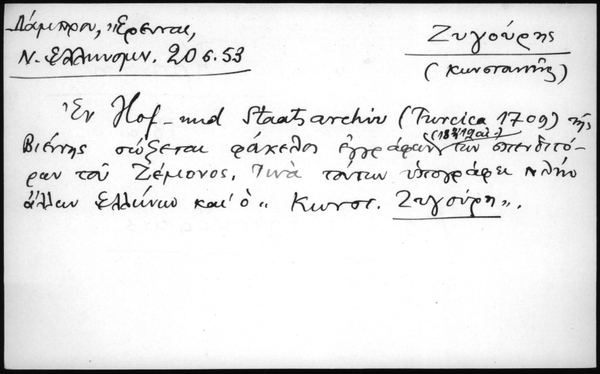 Λάμπρου, Ἔρευναι,
Ν. Ἑλληνομν. 20 σ. 53
Ζυγούρης
(Κωνσταντῖνος)
Ἐν Hof- und Staatsarchiv (Turcica 1709) τῆς
Βιέννης σῴζεται φάκελος ἐγγράφων (18ου/19 αἰ.) τῶν σπενδιτό-
ρων τοῦ Ζέμονος. Τινὰ τούτων ὑπογράφει πλὴν
ἄλλων Ἑλλήνων καὶ ὁ «Κωνστ. Ζυγούρη».